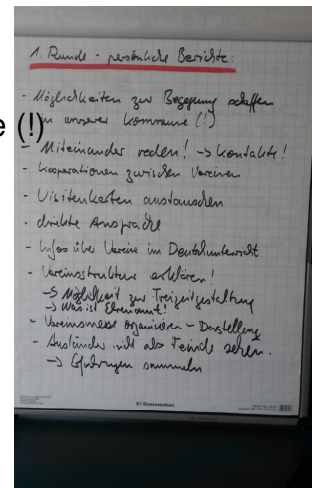 1. Runde - persönliche Berichte:
- Möglichkeiten zur Begegnung schaffen
in unserer Kommune (!)
e (!)
- Miteinander reden! -> Kontakte!
- Kooperationen zwischen Vereinen
- Visitenkarten austauschen
- direkte Ansprache
- Infos über Vereine im Deutschunterricht
- Vereinsstruktur erklären!
-> Möglichkeit zur Freizeitgestaltung
-> Was ist Ehrenamt?
- Vereinsmesse organisieren - Darstellung
- Ausländer nicht als Feinde sehen.
-> Erfahrungen sammeln
Soennecken